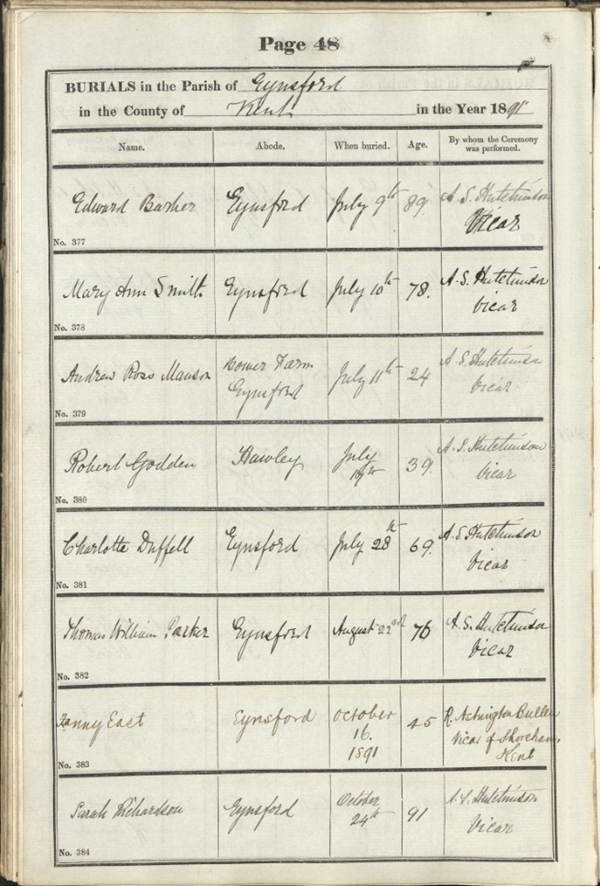 Page 48
BURIALS in the Parish of Eynsford
in the County of Kent in the Year 1891
Name. Abode. When buried. Age. By whom the Ceremony was performed.
Edward Barker Eynsford July 9th 89 A. S. Hutchinson
Vicar
No. 377
Mary Ann Smith Eynsford July 10th 78. A. S. Hutchinson
Vicar
No. 378
Andrew Ross Manson Home Farm July 11th 24 A. S. Hutchinson
Eynsford Vicar
No. 379
Robert Godden Hawley July 39. A. S. Hutchinson
Vicar
No. 380
Charlotte Duffell Eynsford July 28th 69. A. S. Hutchinson
Vicar
No. 381
Thomas William Parker Eynsford August 22nd 76 A. S. Hutchinson
Vicar
No. 382
Fanny East Eynsford October 45 R. Bullen
16. Vicar of Shoreham,
1891 Kent
No. 383
Sarah Richardson Eynsford October 91 A. S. Hutchinson
24th Vicar
No. 384